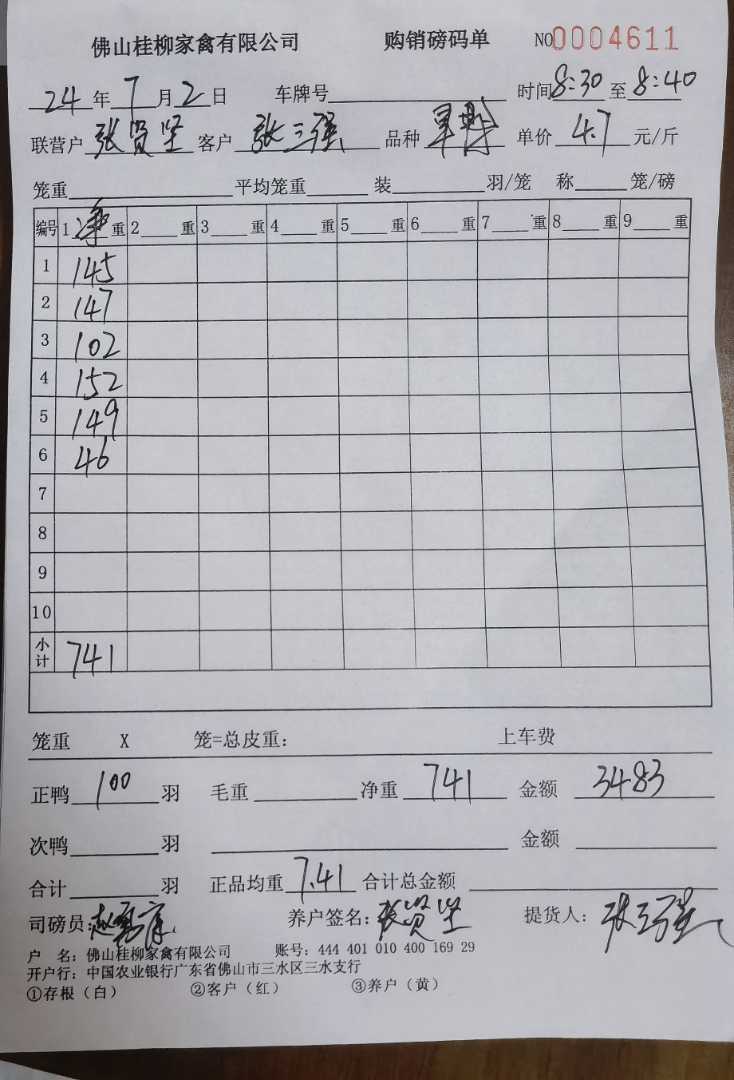 佛山桂柳家禽有限公司 购销磅码单 NO0004611
24年7月2日 车牌号 时间8:30至8:40
联营户 张贤坚 客户 张三强 品种 单价 4.7 元/斤
笼重 平均笼重 装 羽/笼 称 笼/磅
编号 1净重 2重 3重 4重 5重 6重 7重 8重 9重
1 145
2 147
3 102
4 152
5 149
6 46
7
8
9
10
小计 741
笼重 X 笼=总皮重: 上车费
正鸭 100 羽 毛重 净重 741 金额 3483
次鸭 羽 金额
合计 羽 正品均重 7.41 合计总金额
司磅员: 养户签名:张贤坚 提货人:张三强
户 名:佛山桂柳家禽有限公司 账号:444 401 010 400 169 29
开户行:中国农业银行广东省佛山市三水区三水支行
①存根(白) ②客户(红) ③养户(黄)